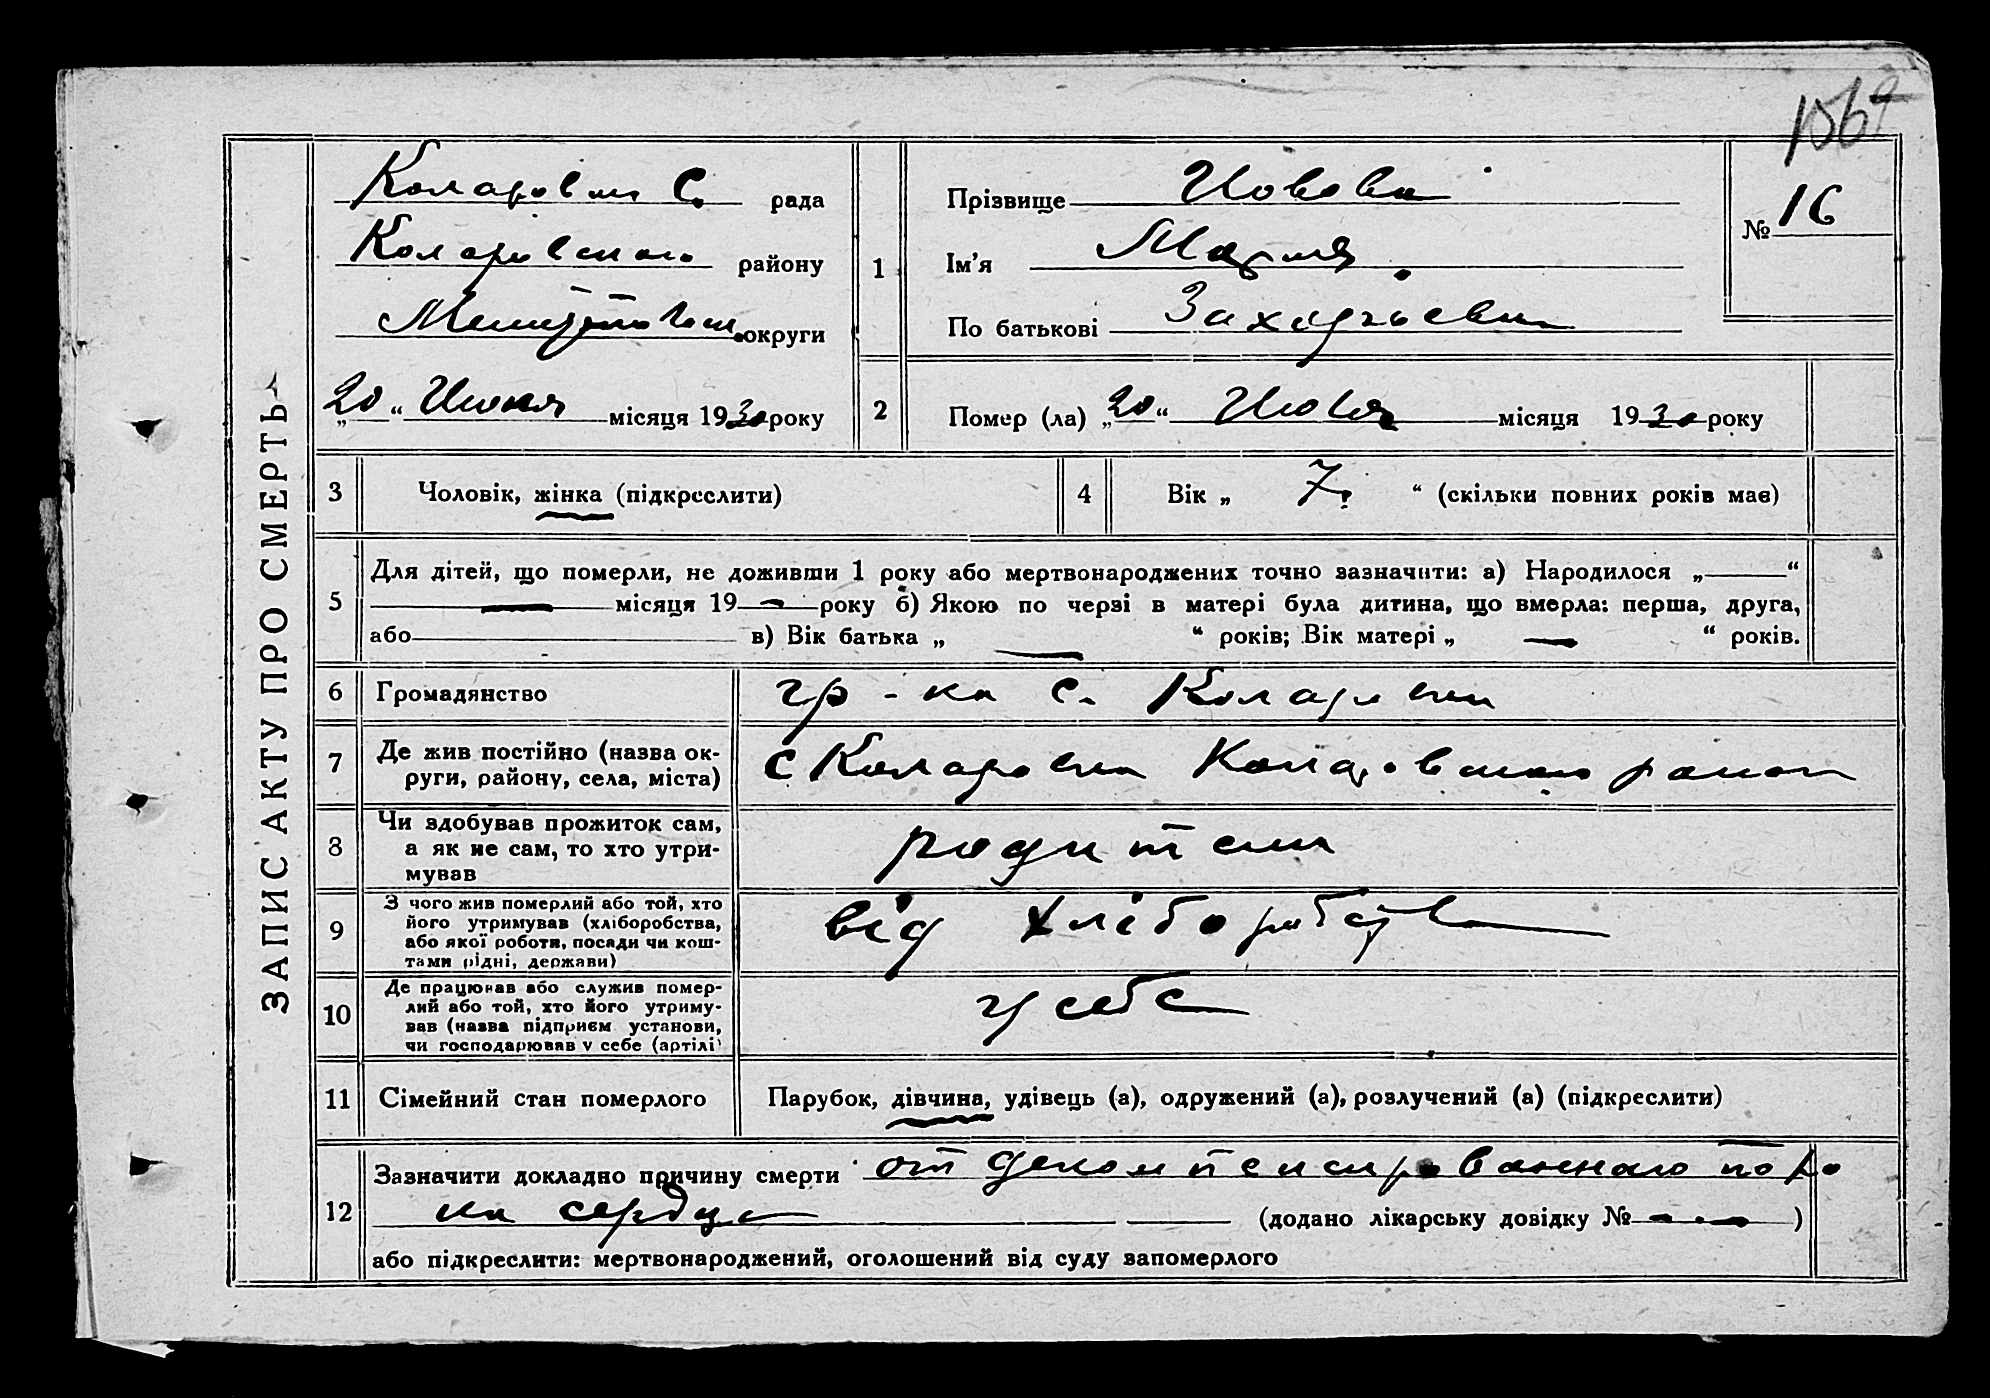 156
ЗАПИС АКТУ ПРО СМЕРТЬ
Коларовск С. рада
Коларовского району
Мелитопольск. округи
„20“ Июня місяця 1930 року
1
Прізвище Иовова
Ім’я Мария
По батькові Захарьевн
№ 16
2 Помер (ла) „20“ Июня місяця 1930 року
3 Чоловік, жінка (підкреслити)
4 Вік „ 7. “ (скільки повних років має)
5 Для дітей, що померли, не доживши 1 року або мертвонароджених точно зазначити: а) Народилося „——“
— місяця 19— року б) Якою по черзі в матері була дитина, що вмерла: перша, друга,
або в) Вік батька „ — “ років; Вік матері „ — “ років.
6 Громадянство гр-ка с. Коларовки
7 Де жив постійно (назва ок-
руги, району, села, міста)
с Коларовка Коларовского район
8 Чи здобував прожиток сам,
а як не сам, то хто утри-
мував
родители
9 З чого жив померлий або той, хто
його утримував (хліборобства,
або якої роботи, посади чи кош-
тами рідні, держави)
від хліборобства
10 Де працював або служив помер-
лий або той, хто його утриму-
вав (назва підприєм установи,
чи господарював у себе (артілі)
у себе
11 Сімейний стан померлого Парубок, дівчина, удівець (а), одружений (а), розлучений (а) (підкреслити)
12 Зазначити докладно причину смерти от декомпенсированного поро
ка сердца (додано лікарську довідку № — . — )
або підкреслити: мертвонароджений, оголошений від суду запомерлого